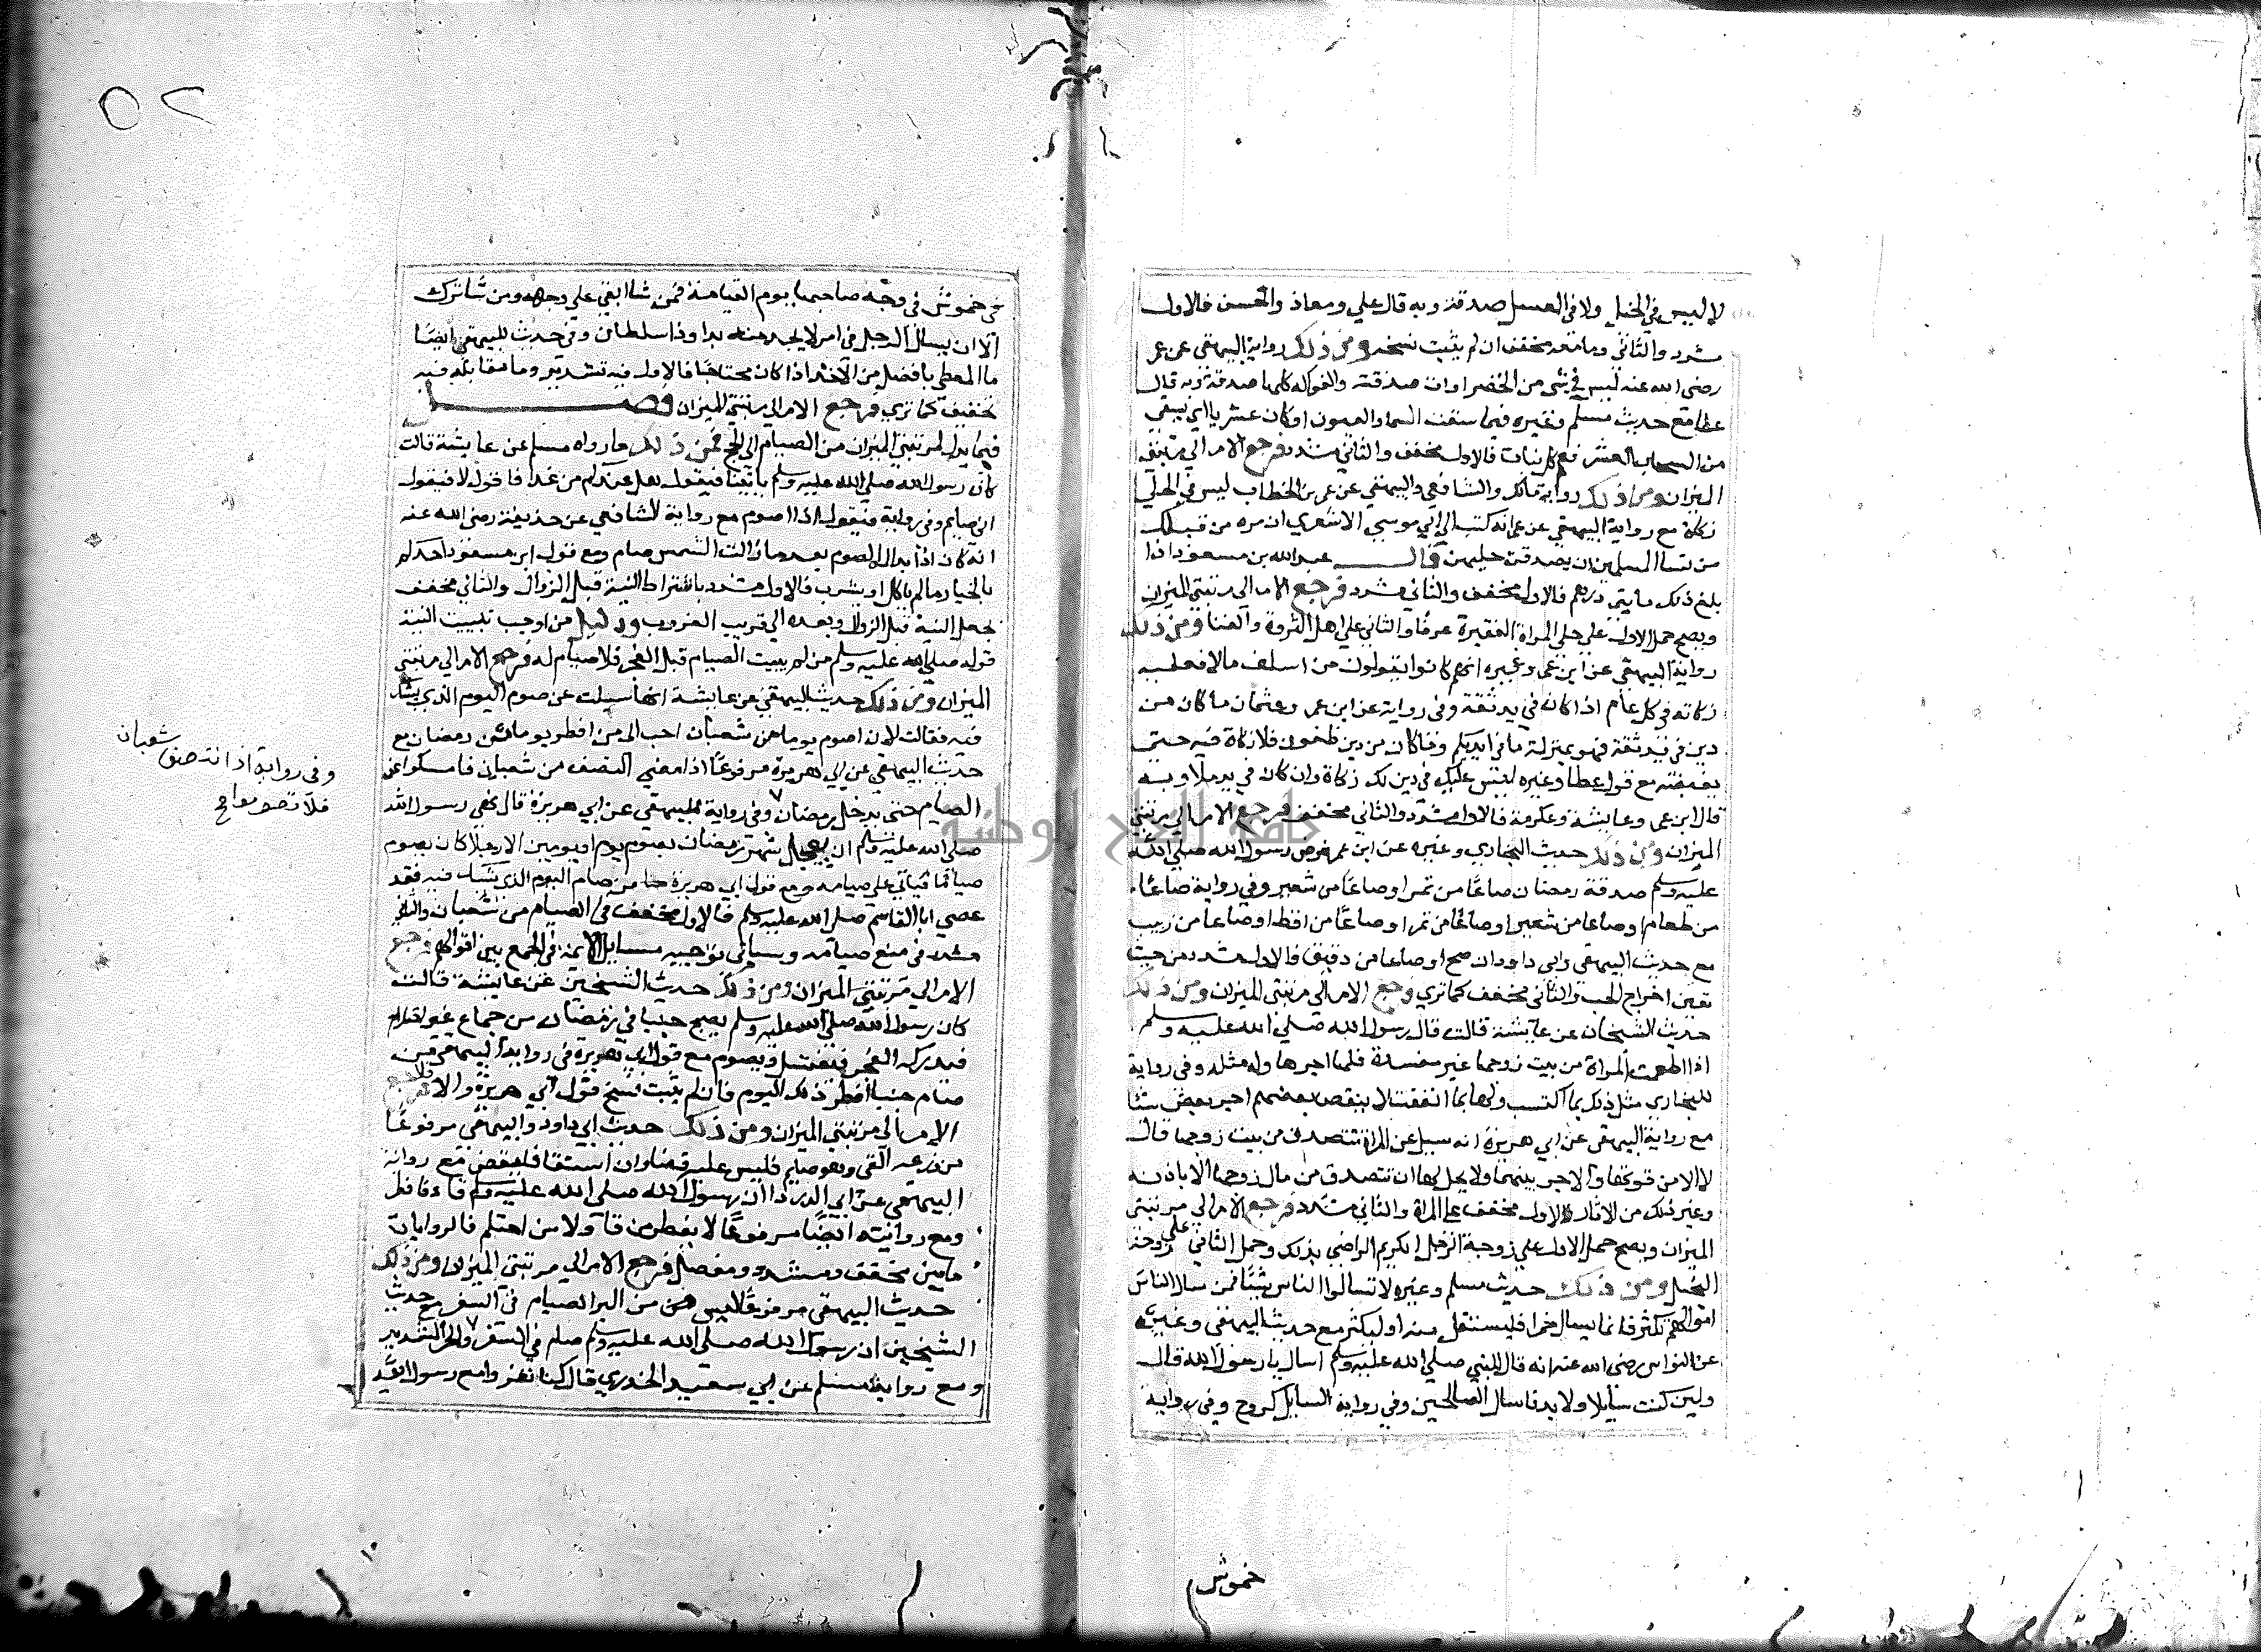 لا ليس في الخيل ولا في العسل صدقة وبه قال علي ومعاذ والحسن فالاول
مشدد والثاني وما معه مخفف ان لم يثبت نسخه ومن ذلك رواية البيهقي عن عمر
رضي الله عنه ليس في شي من الخضراوات صدقة والفواكه كلها صدقة وبه قال
عطا مع حديث مسلم وغيره فيما سقت السما والعيون او كان عشريا اي يسقي
من السحاب العشر فعم كل نبات فالاول مخفف والثاني مشدد فرجع الامر الي مرتبتي
الميزان ومن ذلك رواية مالك والشافعي والبيهقي عن عمر بن الخطاب ليس في الحلي
زكاة مع رواية البيهقي عن عمر انه كتب الي ابي موسي الاشعري ان مره من قبلك
من نسا المسلمين ان يصدقن حليهن قال عبد الله بن مسعود اذا
بلغ ذلك مايتي درهم فالاول مخفف والثاني مشدد فرجع الامر الي مرتبتي الميزان
ويصح حمل الاول علي حلي المراة الفقيرة عرفا والثاني علي اهل الثروة والغنا ومن ذلك
رواية البيهقي عن ابن عمر وغيره انهم كانوا يقولون من اسلف مالا فعليه
زكاته في كل عام اذا كان في يد ثقة وفي رواية عن ابن عمر وعثمان ما كان من
دين في يد ثقة فهو بمنزلة ما في ايديكم وما كان من دين ظنون فلا زكاة فيه حتي
يقبضه مع قول عطا وغيره ليس عليك في دين لك زكاة وان كان في يد ملا وبه
قال ابن عمر وعايشة وعكرمة فالاول مشدد والثاني مخفف فرجع الامر الي مرتبتي
الميزان ومن ذلك حديث البخاري وغيره عن ابن عمر فرض رسول الله صلي الله
عليه وسلم صدقة رمضان صاعا من تمر او صاعا من شعير وفي رواية صاعا
من طعام او صاعا من شعير او صاعا من تمر او صاعا من اقط او صاعا من زبيب
مع حديث البيهقي وابي داود ان صح او صاعا من دقيق فالاول مشدد من حيث
تعين اخراج الحب والثاني مخفف كما تري فرجع الامر الي مرتبتي الميزان ومن ذلك
حديث الشيخان عن عايشة قالت قال رسول الله صلي الله عليه وسلم
اذا اطعمت المراة من بيت زوجها غير مفسدة فلها اجرها وله مثله وفي رواية
للبخاري مثل ذلك بما اكتسب ولها بما انفقت لا ينقص بعضهم اجر بعض شئا
مع رواية البيهقي عن ابي هريرة انه سيل عن المراة تتصدق من بيت زوجها قال
لا الا من قوتها والاجر بينهما ولا يحل لها ان تتصدق من مال زوجها الا باذنه
وغير ذلك من الاثار فالاول مخفف علي المراة والثاني مشدد فرجع الامر الي مرتبتي
الميزان ويصح حمل الاول علي زوجة الرجل الكريم الراضي بذلك وحمل الثاني علي زوجة
البخيل ومن ذلك حديث مسلم وغيره لا تسالوا الناس شيئا فمن سال الناس
اموالهم تكثرا فانما يسال جمرا فليستقل منه او ليكثر مع حديث البيهقي وغيره
عن الفراس رضي الله عنه انه قال للنبي صلي الله عليه وسلم اسال يا رسول الله قال
ولين كنت سايلا ولا بد فاسال الصالحين وفي رواية السايل كروح وفي رواية
خموش
٥٢
خموش في وجه صاحبها يوم القيامة فمن شا ابقي علي وجهه ومن شا ترك
الا ان يسال الرجل في امر لا يجد منه بدا او ذا سلطان وفي حديث للبيهقي ايضا
ما المعطي بافضل من الآخذ اذا كان محتاجا فالاول فيه تشديد وما مقابله فيه
تخفيف كما تري فرجع الامر الي مرتبتي الميزان فصل
فيما يدل لمرتبتي الميزان من الصيام الي الحج فمن ذلك ما رواه مسلم عن عايشة قالت
كان رسول الله صلي الله عليه وسلم ياتينا فيقول هل عندكم من غدا فاقول لا فيقول
اني صايم وفي رواية فيقول اذا اصوم مع رواية الشافعي عن حذيفة رضي الله عنه
انه كان اذا بدا له الصوم بعد ما زالت الشمس صام ومع قول ابن مسعود احدكم
بالخيار ما لم ياكل او يشرب فالاول مشدد باشتراط النية قبل الزوال والثاني مخفف
بجعل النية قبل الزوال وبعده الي قريب الغروب ودليل من اوجب تبييت النية
قوله صلي الله عليه وسلم من لم يبيت الصيام قبل الفجر فلا صيام له فرجع الامر الي مرتبتي
الميزان ومن ذلك حديث البيهقي عن عايشة انها سيلت عن صوم اليوم الذي يشك
فيه فقالت لان اصوم يوما من شعبان احب الي من افطر يوما من رمضان مع
حديث البيهقي عن ابي هريرة مرفوعا اذا مضي النصف من شعبان فامسكوا عن
الصيام حتي يدخل رمضان ٧ وفي رواية للبيهقي عن ابي هريرة قال نهي رسول الله
صلي الله عليه وسلم ان يعجل شهر رمضان بصوم يوم او يومين الا رجلا كان يصوم
صياما فياتي علي صيامه ومع قول ابي هريرة من صام اليوم الذي يشك فيه فقد
عصي ابا القاسم صلي الله عليه وسلم فالاول مخفف في الصيام من شعبان والثاني
مشدد في منع صيامه وسياتي توجيه مسايل الايمة في الجمع بين اقوالهم فرجع
الامر الي مرتبتي الميزان ومن ذلك حديث الشيخين عن عايشة قالت
كان رسول الله صلي الله عليه وسلم يصبح جنبا في رمضان من جماع غير احتلام
فيدركه الفجر فيغتسل ويصوم مع قول ابي هريرة في رواية البيهقي من
صام جنبا افطر ذلك اليوم فان لم يثبت نسخ قول ابي هريرة والا فرجع
الامر الي مرتبتي الميزان ومن ذلك حديث ابي داود والبيهقي مرفوعا
من ذرعه القي وهو صايم فليس عليه قضا وان استقا فليقض مع رواية
البيهقي عن ابي الدردا ان رسول الله صلي الله عليه وسلم قاء فافطر
ومع روايته ايضا مرفوعا لا يفطر من قا ولا من احتلم فالروايات
ما بين مخفف ومشدد ومفصل فرجع الامر الي مرتبتي الميزان ومن ذلك
حديث البيهقي مرفوعا ليس من البر الصيام في السفر مع حديث
الشيخين ان رسول الله صلي الله عليه وسلم صام في السفر
ومع رواية مسلم عن ابي سعيد الخدري قال كنا نغزوا مع رسول الله
وفي رواية اذا انتصف شعبان
فلا تصوموا صح
جامعة النجاح الوطنية